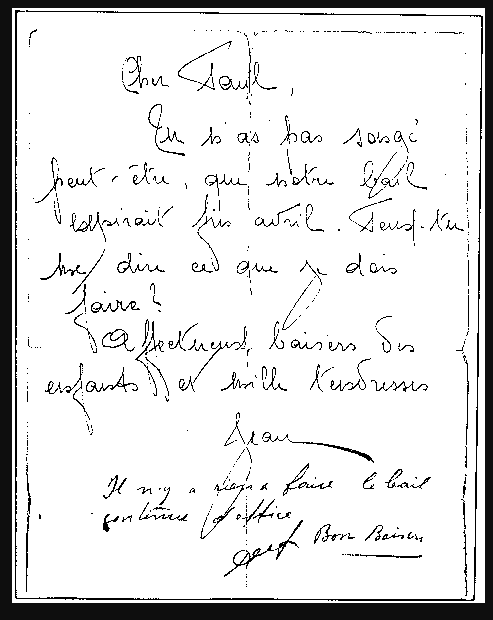 Cher Paul,
Tu n'as pas songé
peut-être, que notre bail
expirait fin avril. Peux-tu
me dire ce que je dois
faire?
Affectueux baisers des
enfants et mille tendresses
Jean
Il n'y a rien a faire le bail
continue d'office
Bon Baisers